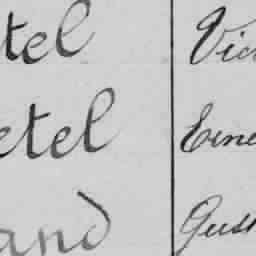 tel Vic
etel Erne
and Gus